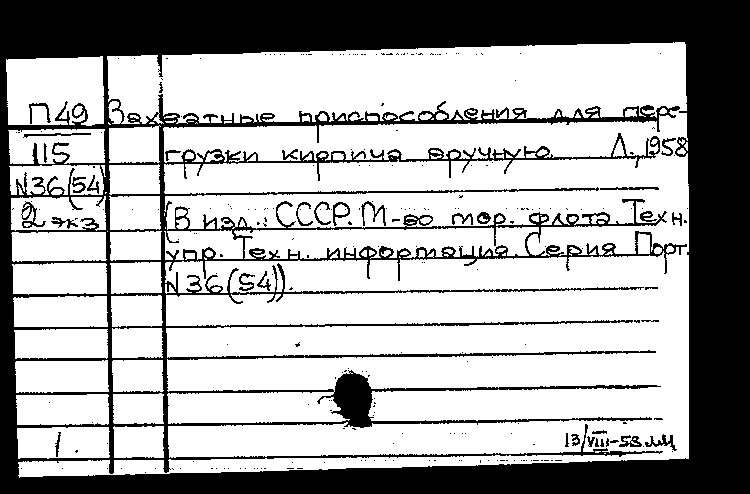 П49 Захватные приспособления для пере-
115 грузки кирпича вручную. Л., 1958
N36(54)
2 экз (В изд.: СССР. М-во мор. флота. Техн.
упр. Техн. информация. Серия Порт.
N36(54)).
1.
13/VIII-58